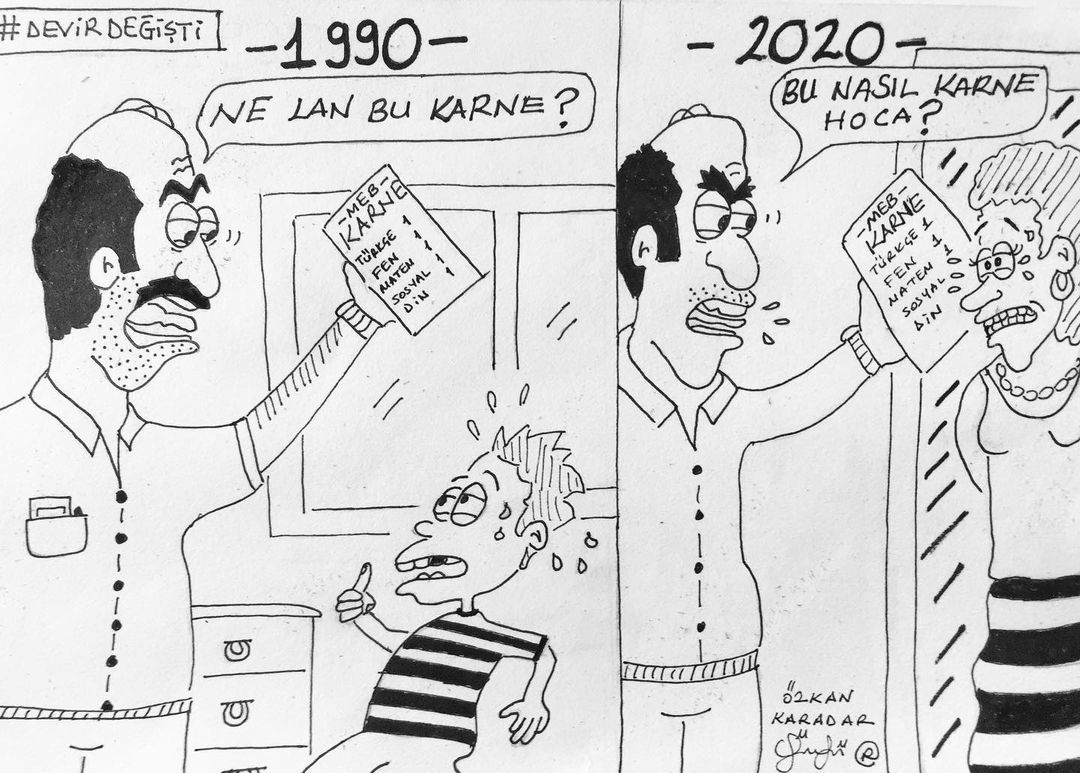 #DEVİR DEĞİŞTİ
-1990-
NE LAN BU KARNE?
-MEB-
KARNE
TÜRKÇE 1
FEN 1
MATEM 1
SOSYAL 1
DİN 1
-2020-
BU NASIL KARNE
HOCA?
-MEB-
KARNE
TÜRKÇE 1
FEN 1
MATEM 1
SOSYAL
DİN
ÖZKAN
KARADAR
®